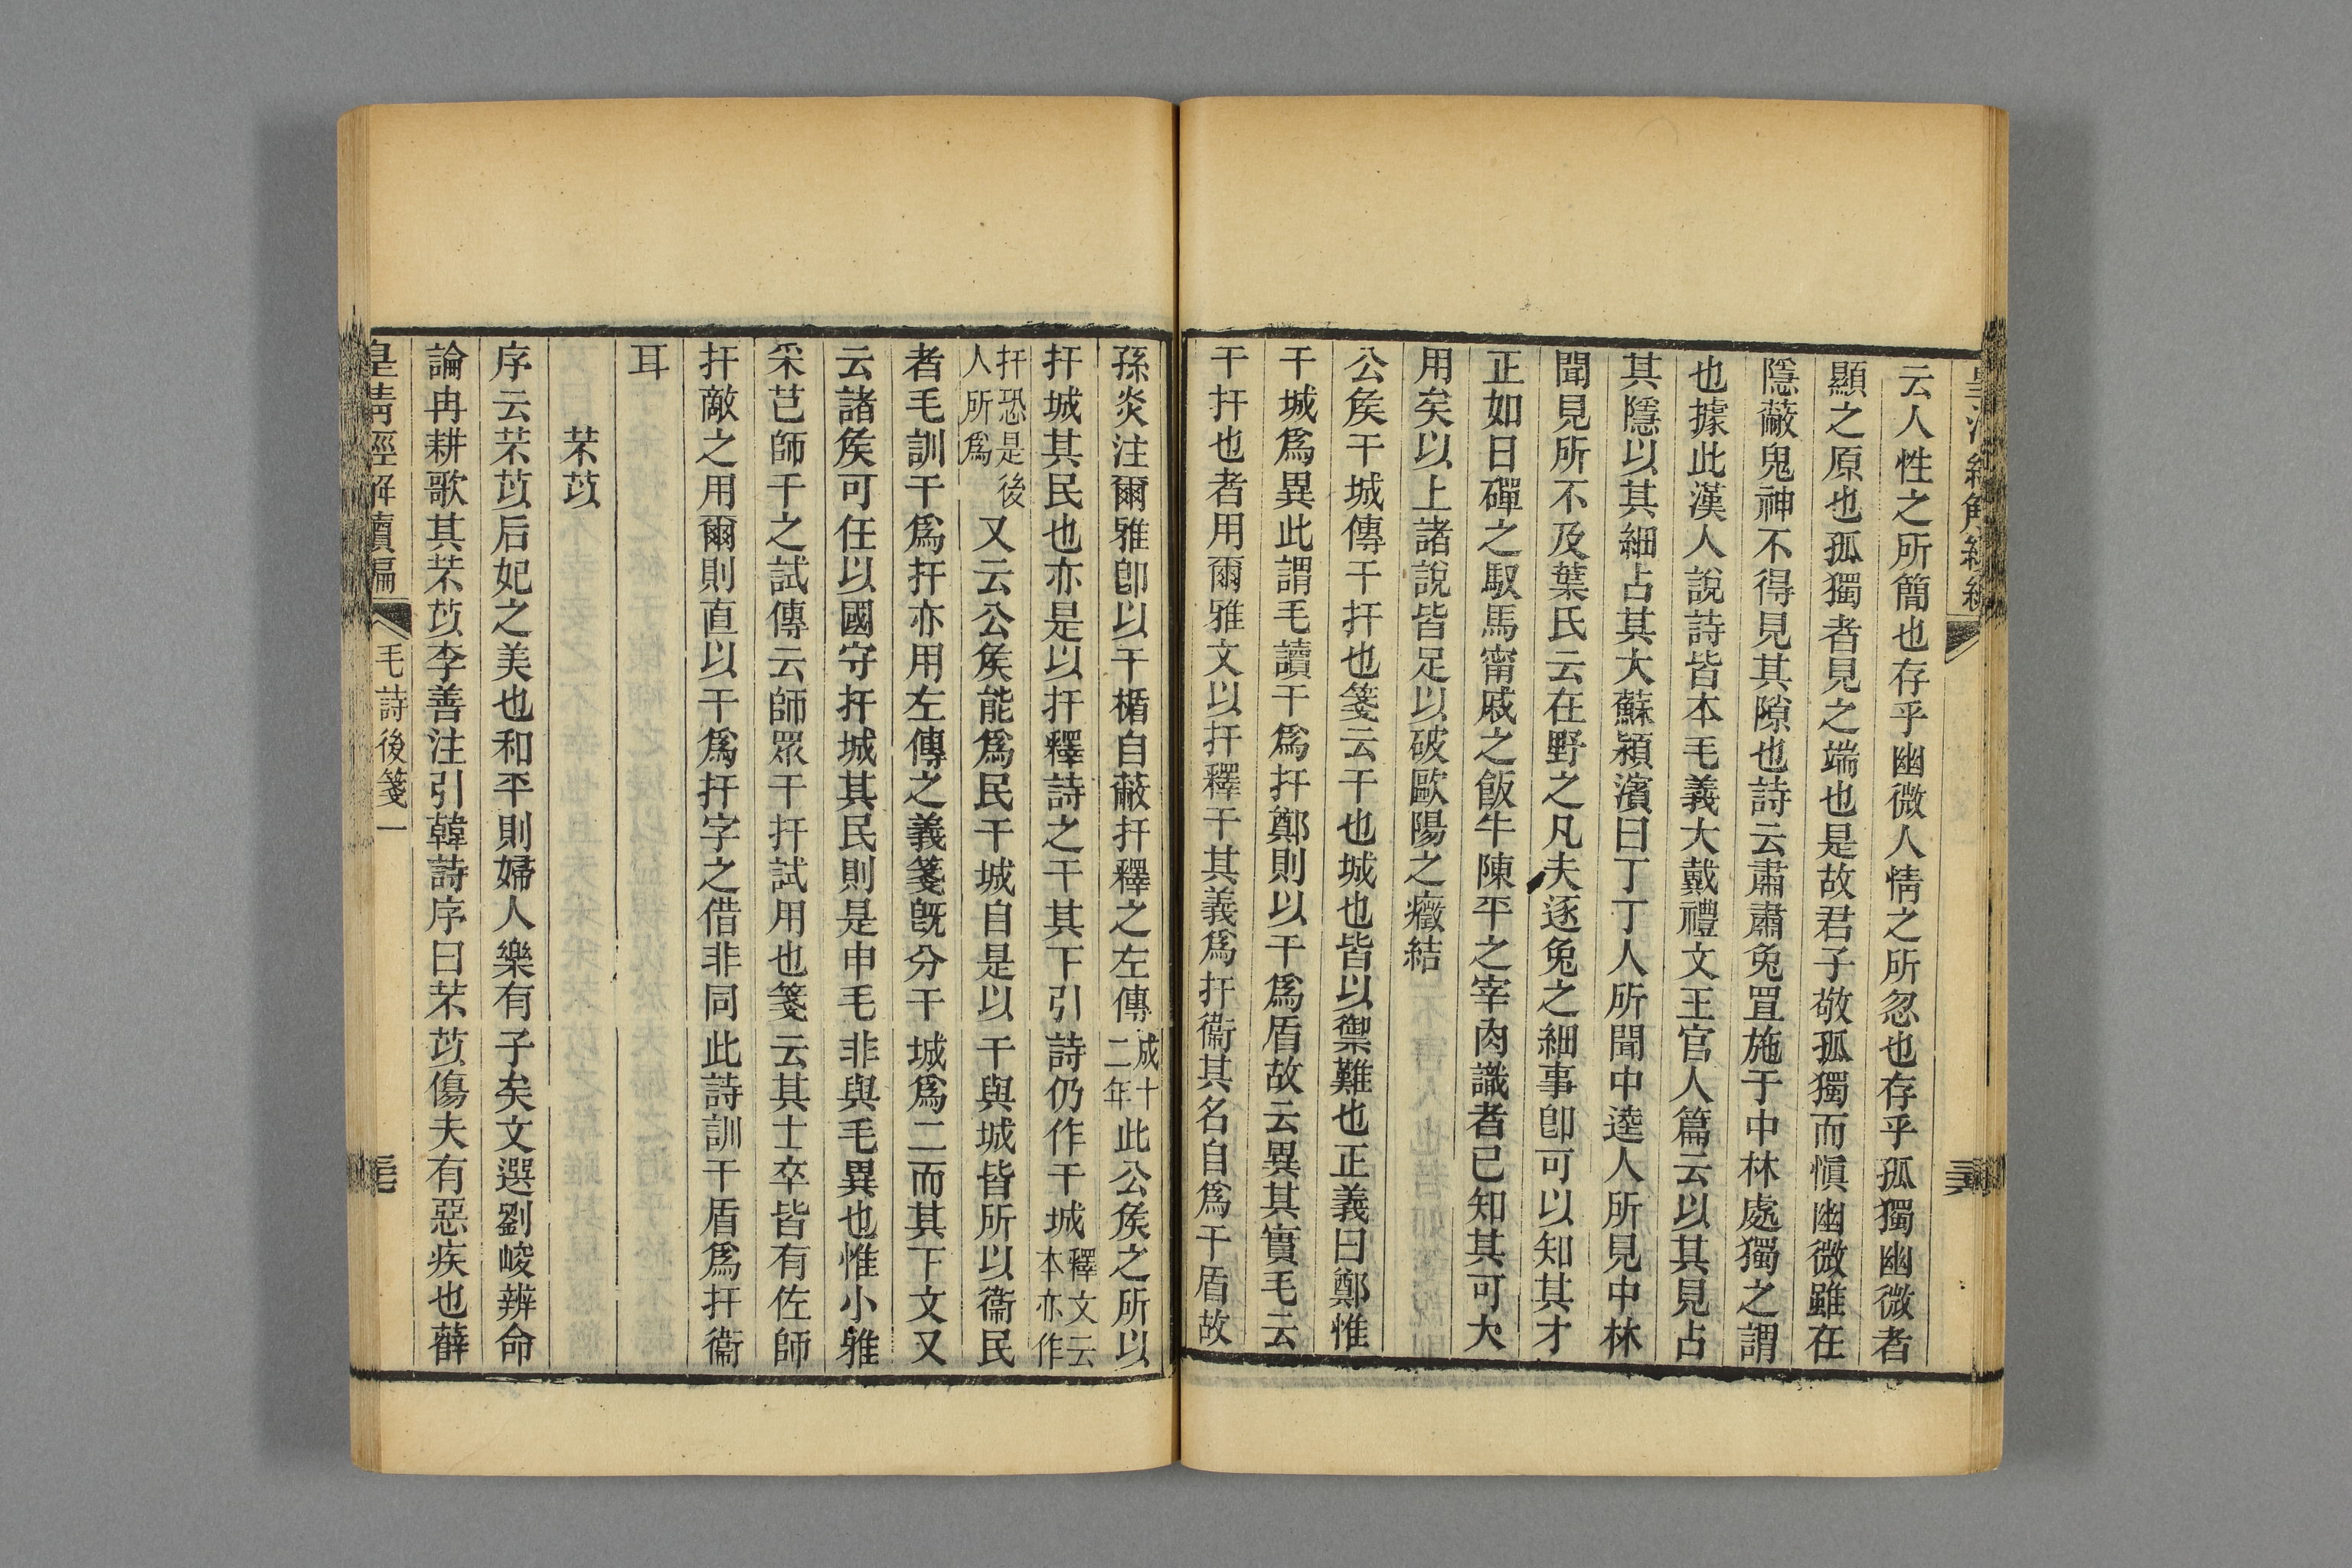 云人性之所簡也存乎幽微人情之所忽也存乎孤獨幽微者
顯之原也孤獨者見之端也是故君子敬孤獨而愼幽微雖在
隱蔽鬼神不得見其隙也詩云肅肅兔罝施于中林處獨之謂
也據此漢人說詩皆本毛義大戴禮文王官人篇云以其見占
其隱以其細占其大蘇潁濱曰丁丁人所聞中逵人所見中林
聞見所不及葉氏云在野之凡夫逐兔之細事卽可以知其才
正如日磾之馭馬甯戚之飯牛陳平之宰肉識者已知其可大
用矣以上諸說皆足以破歐陽之癥結
公矦干城傳干扞也箋云干也城也皆以禦難也正義曰鄭惟
干城爲異此謂毛讀干爲扞鄭則以干爲盾故云異其實毛云
干扞也者用爾雅文以扞釋干其義爲扞衞其名自爲干盾故
孫炎注爾雅卽以干楯自蔽扞釋之左傳成十二年此公矦之所以
扞城其民也亦是以扞釋詩之干其下引詩仍作干城釋文云本亦作
扞恐是後人所爲又云公矦能爲民干城自是以干與城皆所以衞民
者毛訓干爲扞亦用左傳之義箋旣分干城爲二而其下文又
云諸矦可任以國守扞城其民則是申毛非與毛異也惟小雅
采芑師干之試傳云師眾干扞試用也箋云其士卒皆有佐師
扞敵之用爾則直以干爲扞字之借非同此詩訓干盾爲扞衞
耳
芣苢
序云芣苢后妃之美也和平則婦人樂有子矣文選劉峻辨命
論冉耕歌其芣苢李善注引韓詩序曰芣苢傷夫有惡疾也薛
皇淸經解續編 毛詩後箋一